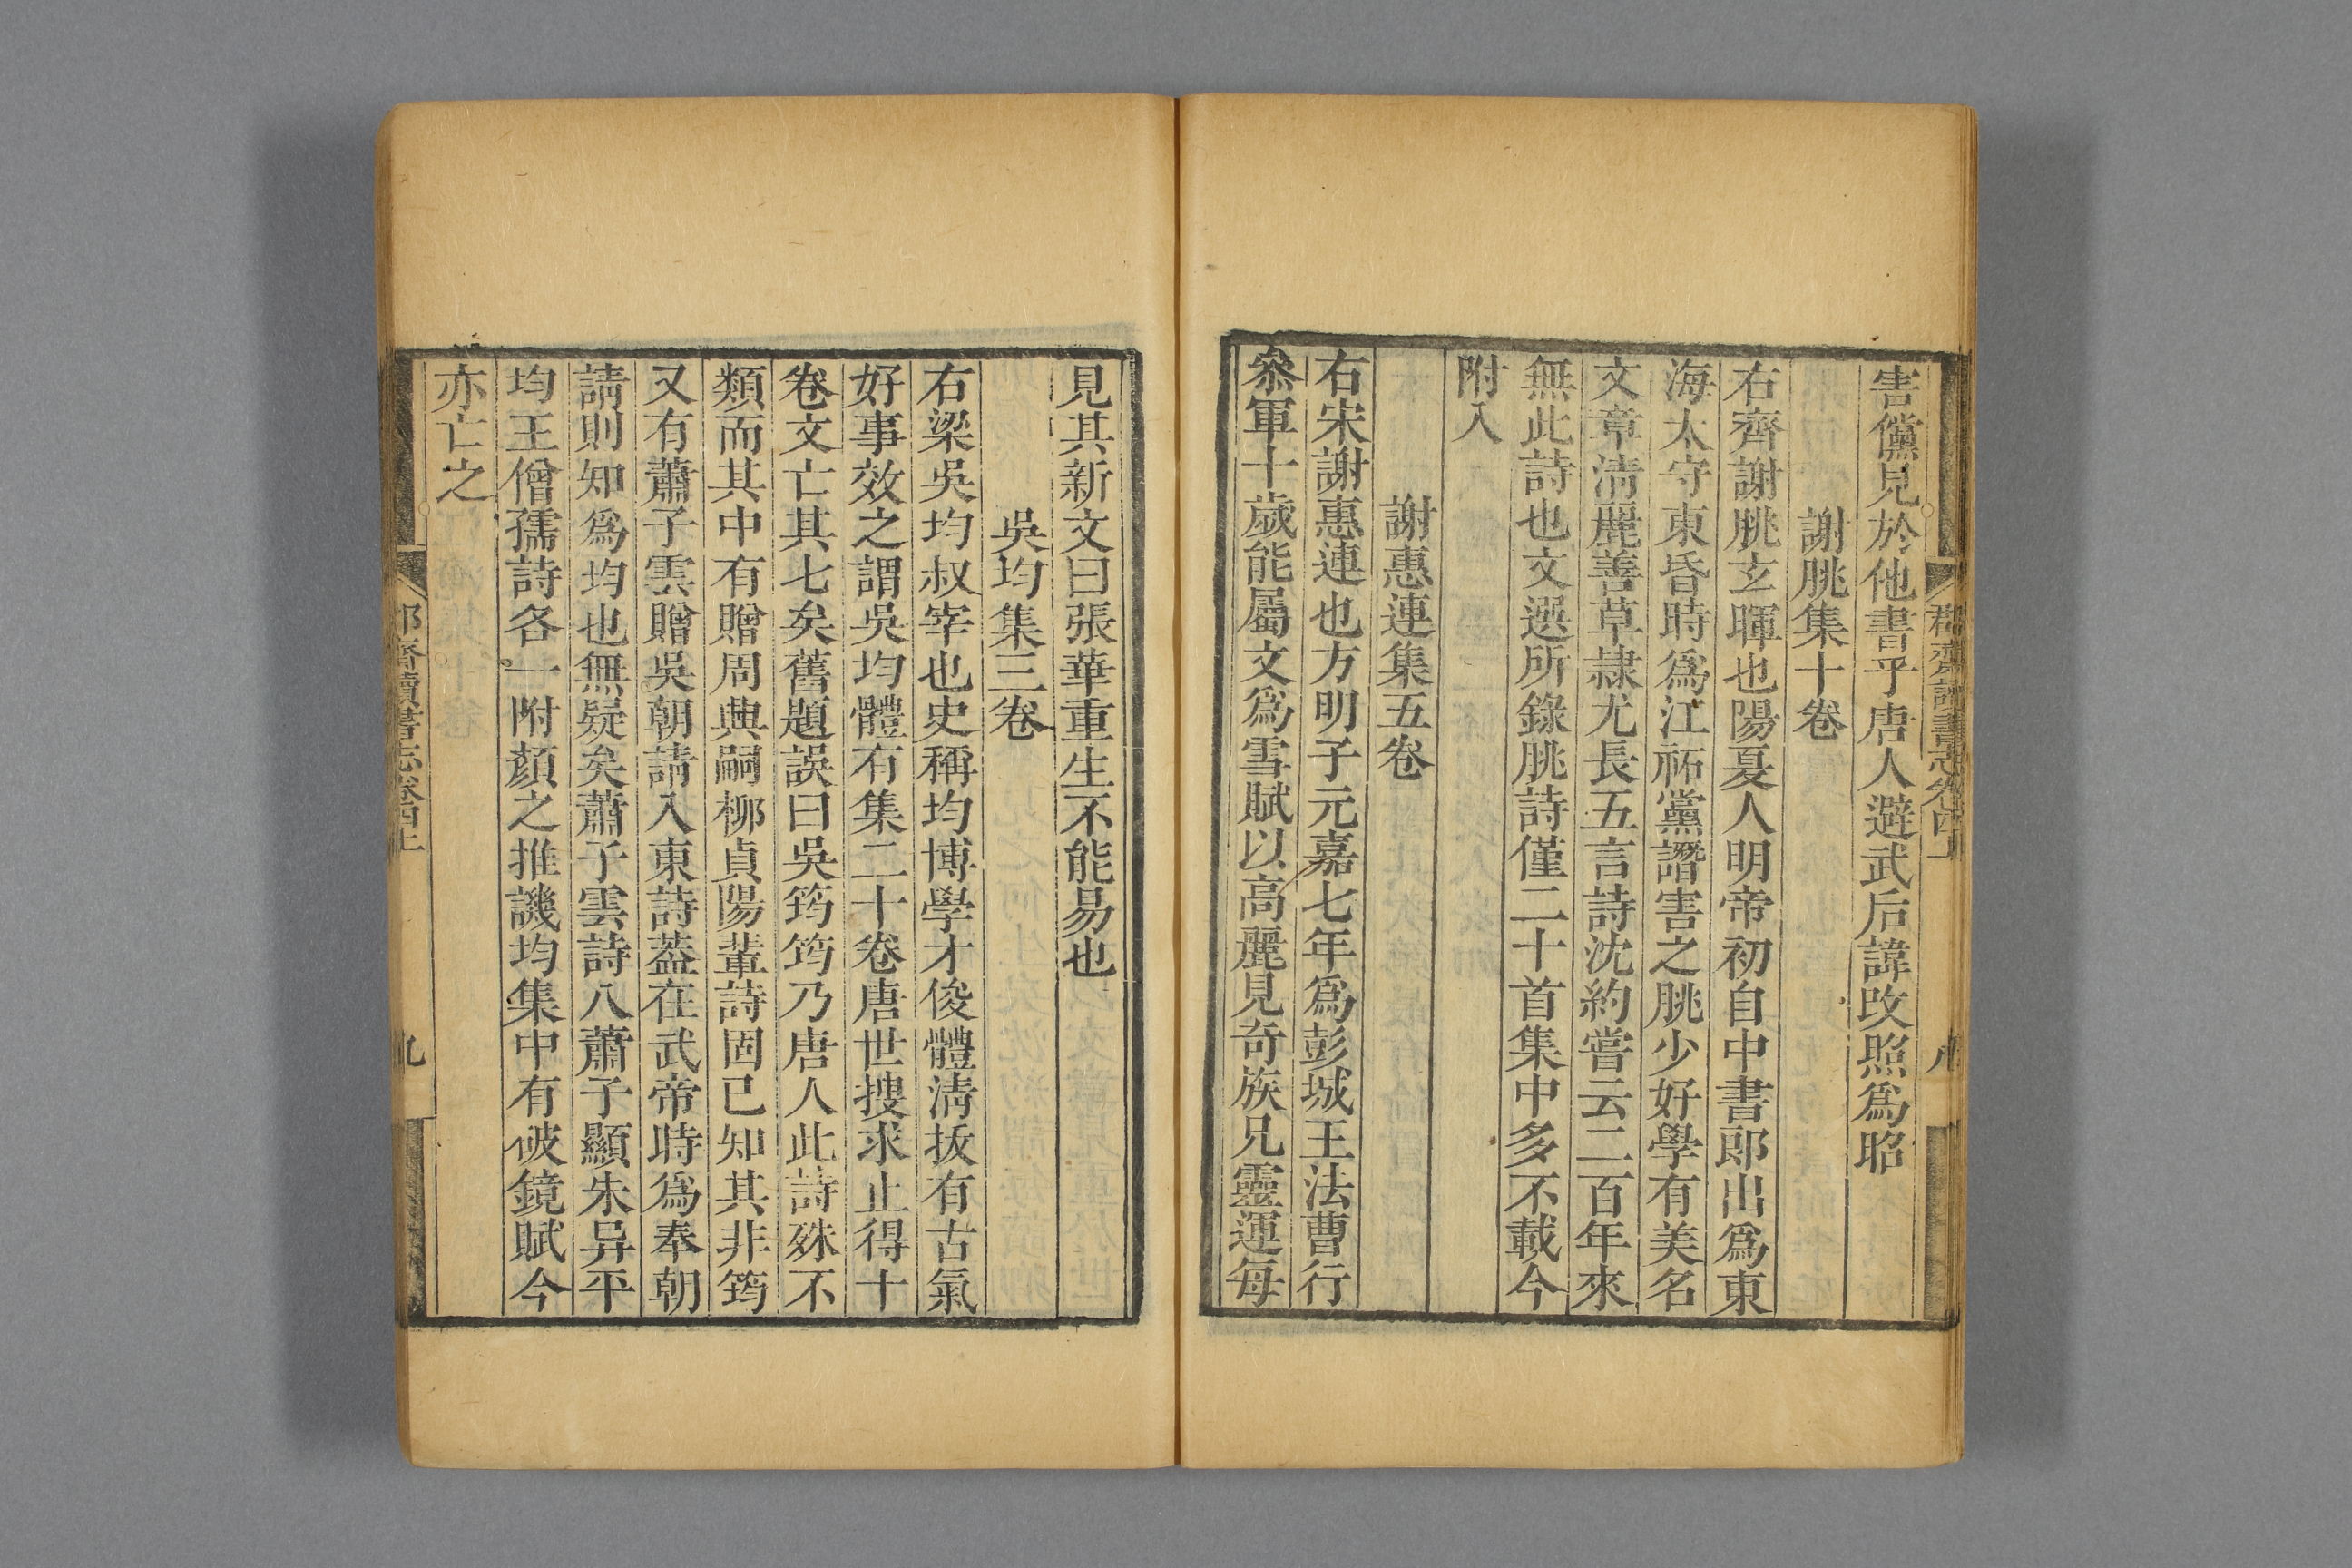 害儻見於他書乎唐人避武后諱改照爲昭
謝朓集十卷
右齊謝朓玄暉也陽夏人明帝初自中書郎出爲東
海太守東昏時爲江祏黨譖害之朓少好學有美名
文章清麗善草隷尤長五言詩沈約嘗云二百年來
無此詩也文選所錄朓詩僅二十首集中多不載今
附入
謝惠連集五卷
右宋謝惠連也方明子元嘉七年爲彭城王法曹行
叅軍十歲能屬文爲雪賦以高麗見奇族兄靈運每
見其新文曰張華重生不能易也
吳均集三卷
右梁吳均叔宰也史稱均博學才俊體清拔有古氣
好事效之謂吳均體有集二十卷唐世搜求止得十
卷文亡其七矣舊題誤曰吳筠筠乃唐人此詩殊不
類而其中有贈周興嗣柳貞陽輩詩固已知其非筠
又有蕭子雲贈吳朝請入東詩葢在武帝時爲奉朝
請則知爲均也無疑矣蕭子雲詩八蕭子顯朱异平
均王僧孺詩各一附顏之推譏均集中有破鏡賦今
亦亡之
郡齋讀書志卷四上
八
郡齋讀書志卷四上
九